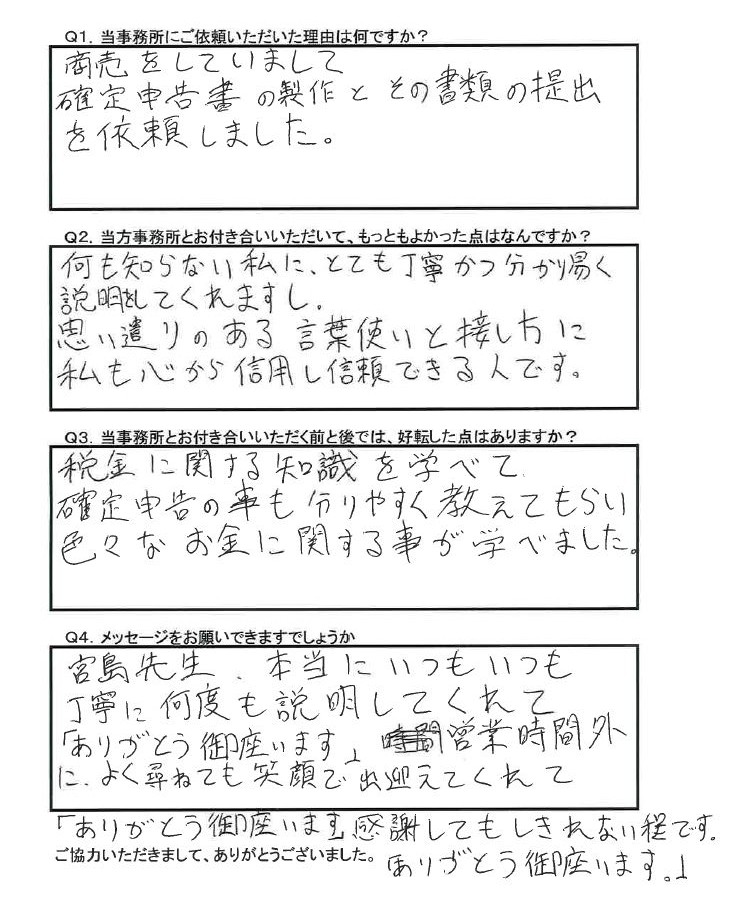 Q1. 当事務所にご依頼いただいた理由は何ですか？
商売をしていまして
確定申告書の製作とその書類の提出
を依頼しました。
Q2. 当方事務所とお付き合いいただいて、もっともよかった点はなんですか？
何も知らない私に、とても丁寧かつ分かり易く
説明をしてくれますし、
思い遣りのある言葉使いと接し方に
私も心から信用し信頼できる人です。
Q3. 当事務所とお付き合いいただく前と後では、好転した点はありますか？
税金に関する知識を学べて
確定申告の事も分りやすく教えてもらい
色々なお金に関する事が学べました。
Q4. メッセージをお願いできますでしょうか
宮島先生、本当にいつもいつも
丁寧に何度も説明してくれて
「ありがとう御座います」営業時間外
に、よく尋ねても笑顔で出迎えてくれて
「ありがとう御座います」感謝してもしきれない程です。
ご協力いただきまして、ありがとうございました。
ありがとう御座います。」